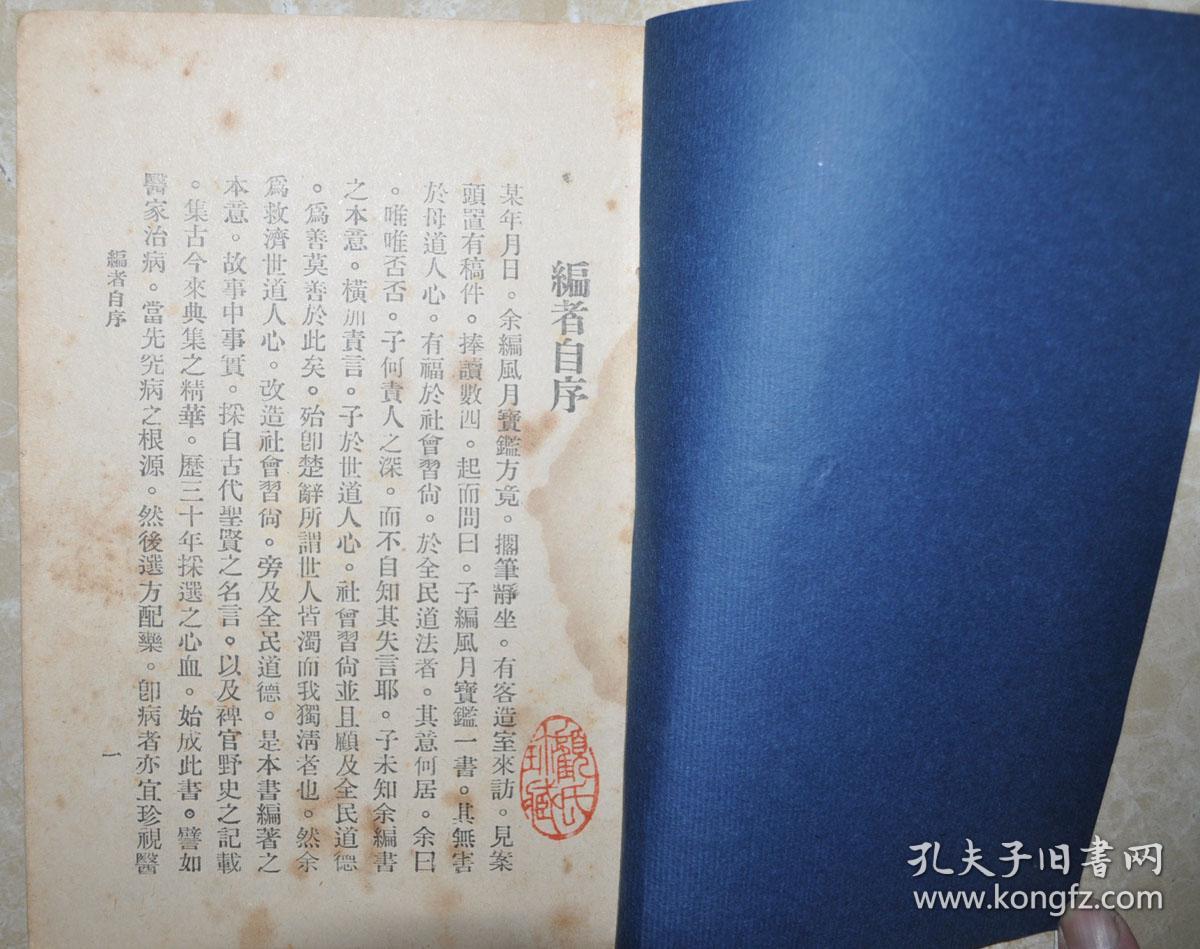 編者自序
某年月日。余編風月寶鑑方竟。擱筆靜坐。有客造室來訪。見案
頭置有稿件。捧讀數四。起而問曰。子編風月寶鑑一書。其無害
於母道人心。有福於社會習尙。於全民道法者。其意何居。余曰
。唯唯否否。子何責人之深。而不自知其失言耶。子未知余編書
之本意。橫加責言。子於世道人心。社會習尙並且顧及全民道德
。爲善莫善於此矣。殆卽楚辭所謂世人皆濁而我獨淸者也。然余
爲救濟世道人心。改造社會習尙。旁及全民道德。是本書編著之
本意。故事中事實。採自古代聖賢之名言。以及裨官野史之記載
。集古今來典集之精華。歷三十年採選之心血。始成此書。譬如
醫家治病。當先究病之根源。然後選方配藥。卽病者亦宜珍視醫
編者自序
一
顧氏珍藏
孔夫子旧书网
www.kongfz.com